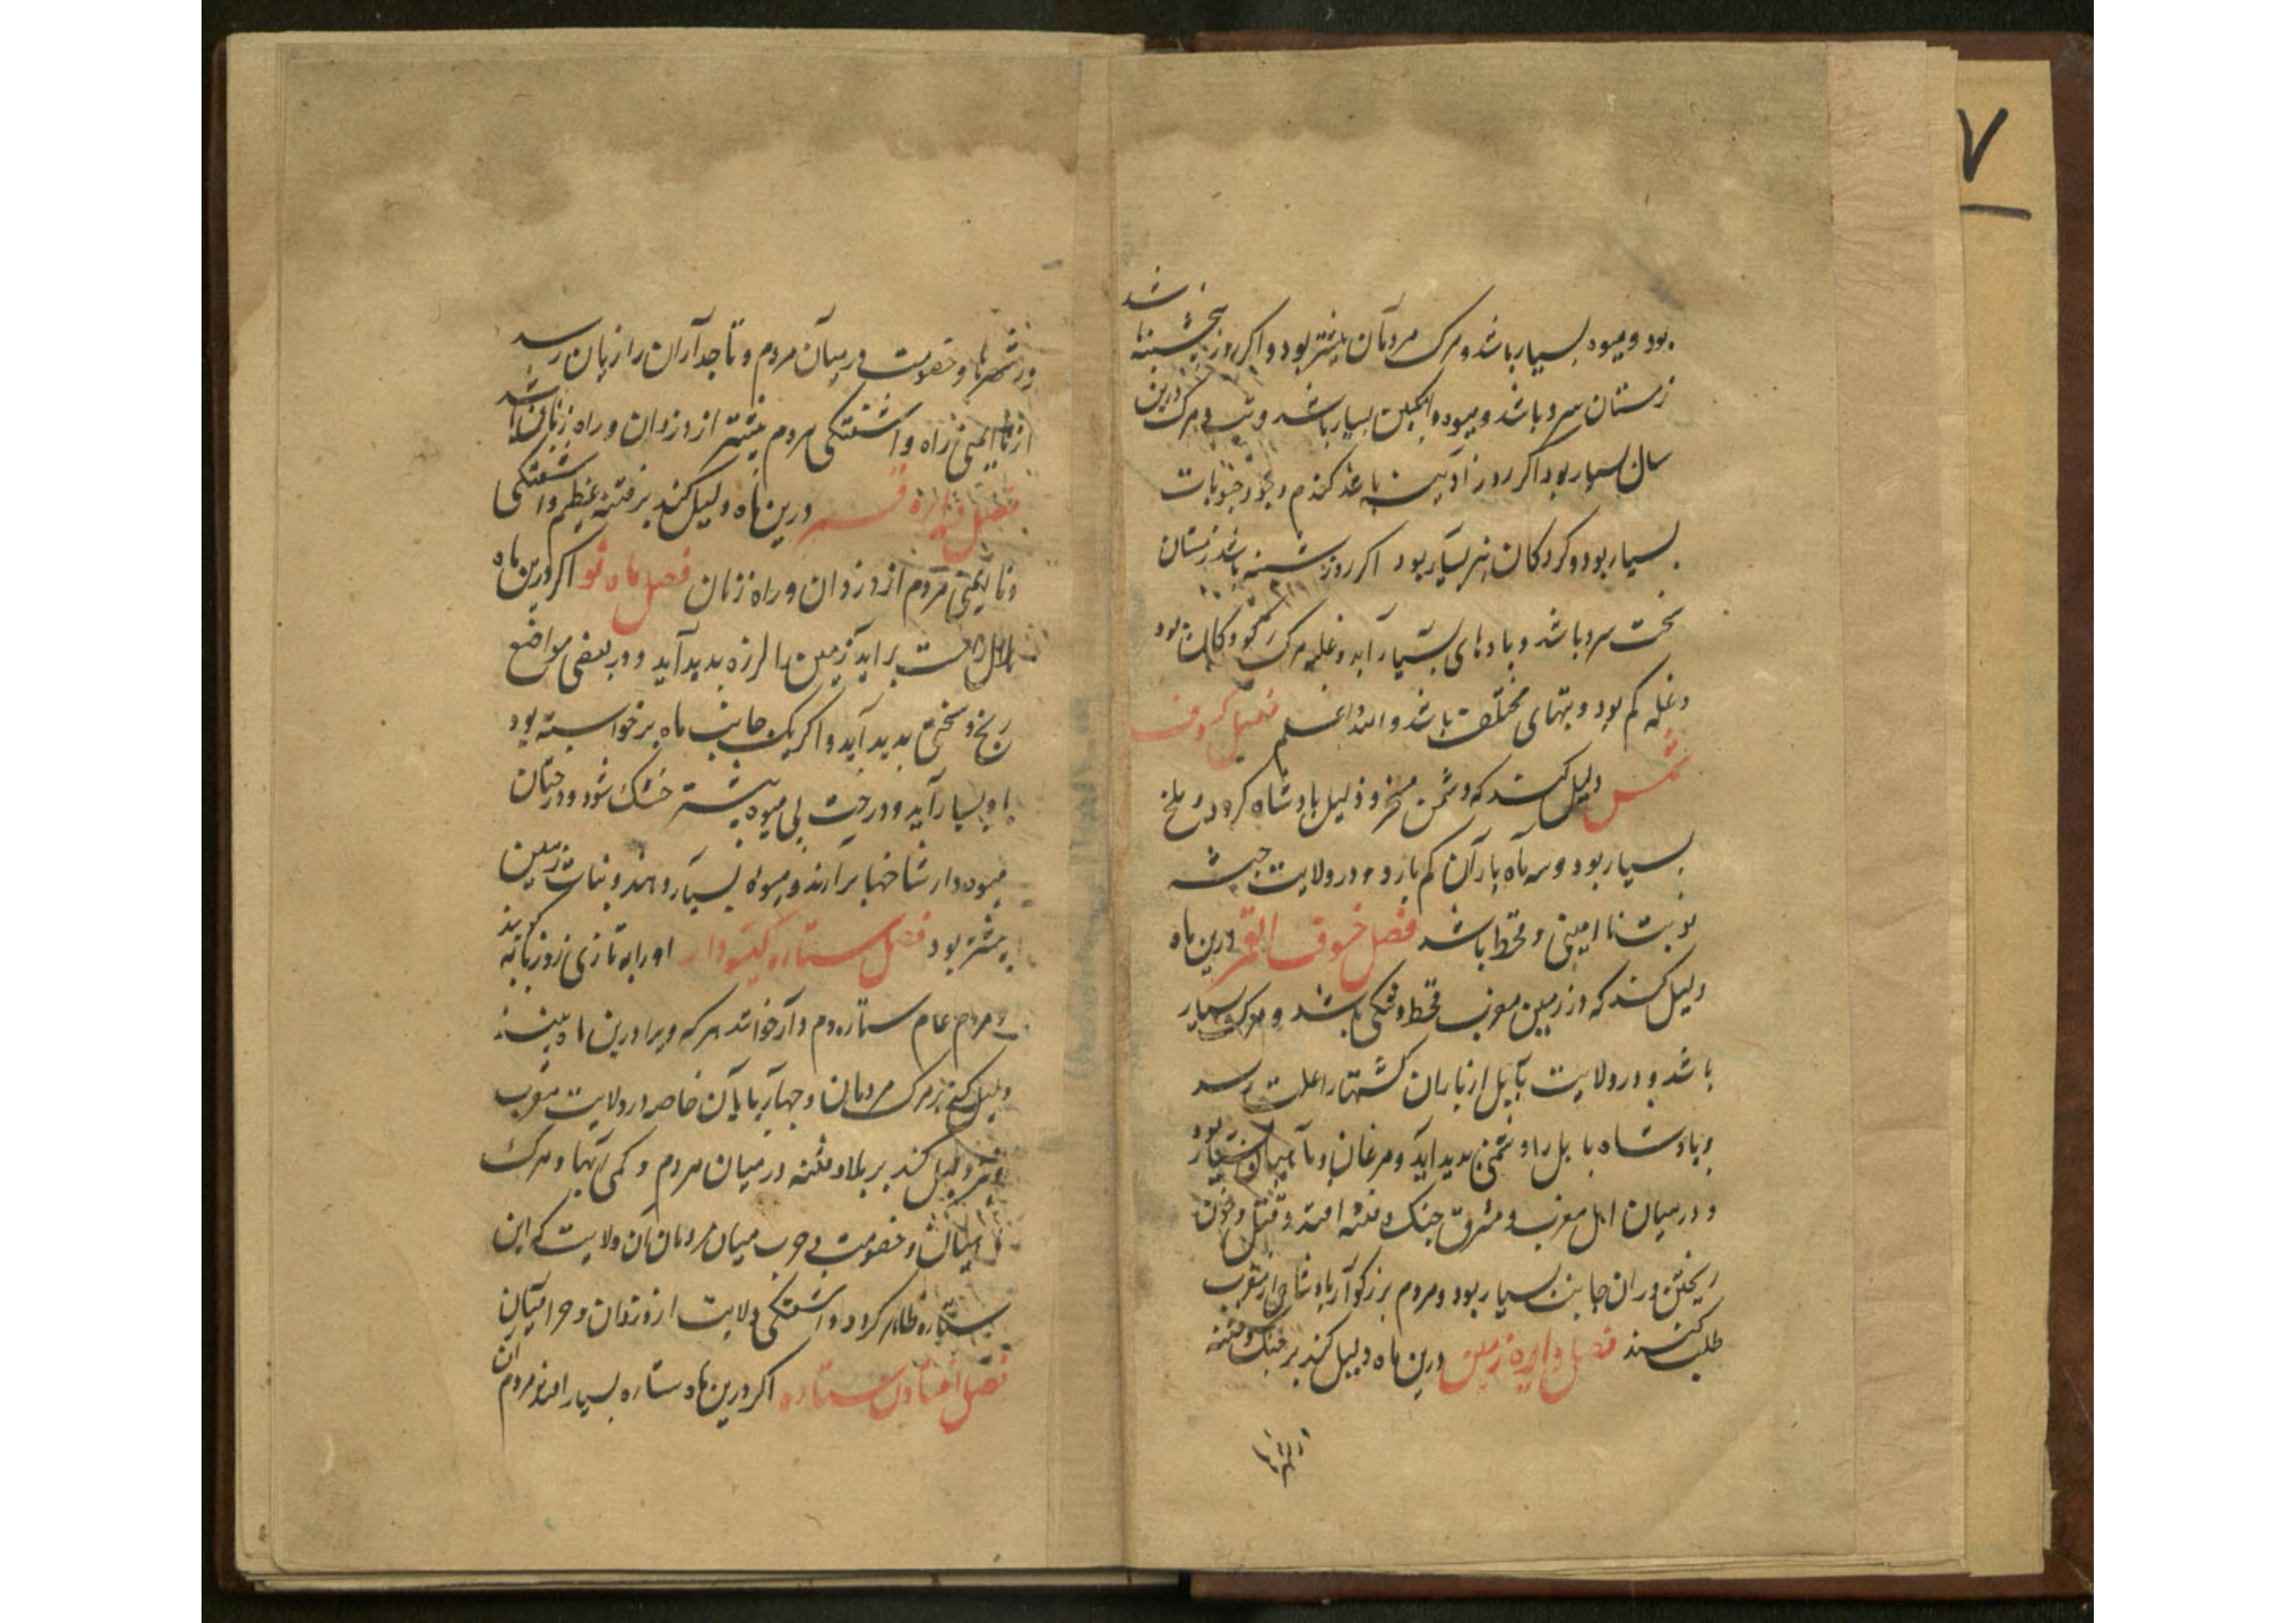 ۷
بود و میوه بسیار باشد و مرک مردمان بیشتر بود و اکر روز پنجشنبه باشد
زمستان سرد باشد و میوه و انکبین بسیار باشد و تب و مرک درین
سال بسیار بود اکر روز آدینه باشد کندم و جو و حبوبات
بسیار بود و کردکان نیز بسیار بود اکر روز شنبه باشد زمستان
سخت سرد باشد و بادهای بسیار آید و غلبه مرک کودکان بود
و غله کم بود و تبهای مختلف باشد والله اعلم فصل کسوف
شمس دلیل کند که دشمن مسخر و ذلیل پادشاه کردد و ملخ
بسیار بود و سه ماه باران کم بارد و در ولایت حبشه
نوبت نا ایمنی و قحط باشد فصل خسوف القمر درین ماه
دلیل کند که در زمین مغرب قحط و تنکی باشد و مرک بسیار
باشد و در ولایت بابل از باران کشتها را علت رسد
و پادشاه بابل را دشمن پدید آید و مرغان و ماهیان بسیار بود
و در میان اهل مغرب و مشرق جنک و فتنه افتد و قتل و خون
ریختن در ان جانب بسیار بود و مردم بزرکوار پادشاهی از مغرب
طلب کنند فصل دایره زمین درین ماه دلیل کند بر جنک و فتنه
در شهرها
در شهرها و خصومت در میان مردم و تاجداران را زیان رسد
از نا ایمنی راه و اشفتکی مردم بیشتر از دزدان و راه زنان باشد
فصل دایره قمر درین ماه دلیل کند بر فتنه عظیم و اشفتکی
و نا ایمنی مردم از دزدان و راه زنان فصل ماه نو اکر درین ماه
راست براید زمین را لرزه پدید آید و در بعضی مواضع
رنج و سختی پدید آید و اکر یک جانب ماه برخواسته بود
باد بسیار آید و درخت بی میوه بیشتر خشک شود و درختان
میوه دار شاخها برآرند و میوهٔ بسیار دهند و نبات زمین
بیشتر بود فصل ستاره کیسودار او را به تازی ذوذنابه کویند
و مردم عام ستاره دم دار خوانند هر که ویرا درین ماه بیند
دلیل کند بر مرک مردمان و چهارپایان خاصه در ولایت مغرب
و نیز دلیل کند بر بلا و فتنه در میان مردم و کمی آبها و مرک
ماهیان و خصومت و حرب میان مردمان آن ولایت که این
ستاره ظاهر کردد و اشفتکی ولایت از دزدان و حرامیان
فصل افتادن ستاره اکر درین ماه ستاره بسیار افتد مردم ان